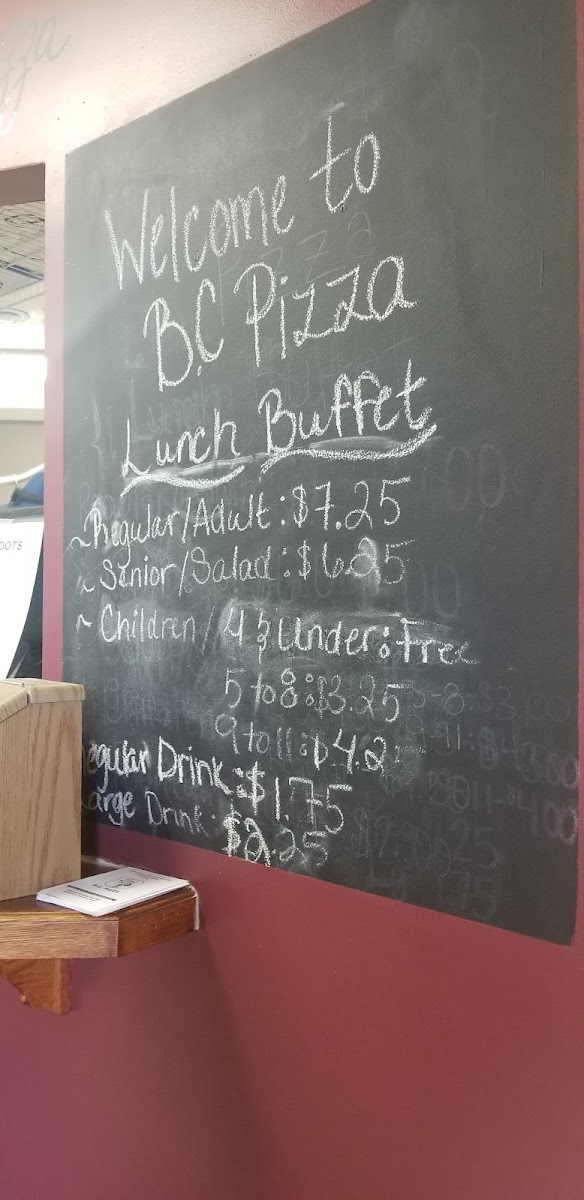 Welcome to
B.C Pizza
Lunch Buffet
~Regular/Adult:$7.25
~ Senior/Salad:$6.25
~ Children/ 4 & Under: Free
5 to 8:$3.25
9 to 11:$4.2
egular Drink:$1.75
arge Drink: $2.25
OOTS